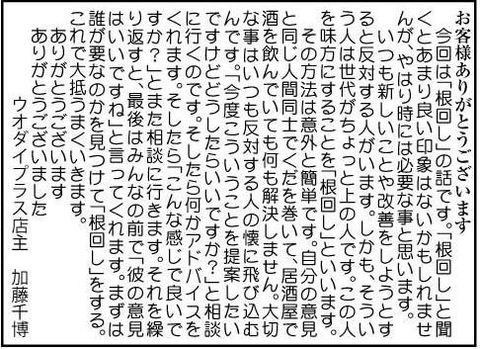 お客様ありがとうございます
　今回は「根回し」の話です。「根回し」と聞
くとあまり良い印象はないかもしれませ
んが、やはり時には必要な事と思います。
　いつも新しいことや改善をしようとす
ると反対する人がいます。しかも、そうい
う人は世代がちょっと上の人です。この人
を味方にすることを「根回し」といいます。
　その方法は意外と簡単です。自分の意見
と同じ人間同士でくだを巻いて、居酒屋で
酒を飲んでいても何も解決しません。大切
な事はいつも反対する人の懐に飛び込む
んです。「今度こういうことを提案したい
ですけどどうしたらいいですか？」と相談
に行くのです。そしたら何かアドバイスを
くれます。そしたら「こんな感じで良いで
すか？」とまた相談に行きます。それを繰
り返すと、最後はみんなの前で「彼の意見
はいいですね」と言ってくれます。まずは
誰が要なのかを見つけて「根回し」をする。
これで大抵うまくいきます。
　ありがとうございます
　ありがとうございました
ウオダイプラス店主　加藤千博